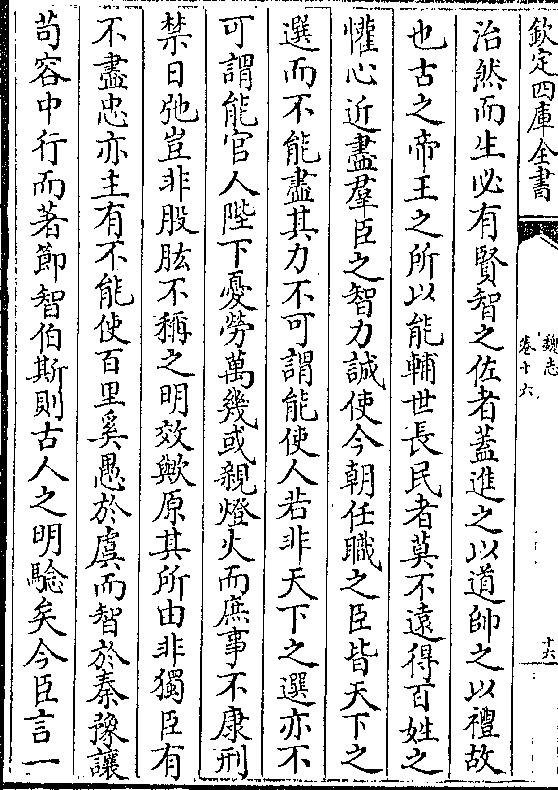 欽定四庫全書
魏志
卷十六
十六
治然而生必有賢智之佐者蓋進之以道帥之以禮故
也古之帝王之所以能輔世長民者莫不遠得百姓之
懽心近盡羣臣之智力誠使今朝任職之臣皆天下之
選而不能盡其力不可謂能使人若非天下之選亦不
可謂能官人陛下憂勞萬幾或親燈火而庶事不康刑
禁日弛豈非股肱不稱之明效歟原其所由非獨臣有
不盡忠亦主有不能使百里奚愚於虞而智於秦豫讓
茍容中行而著節智伯斯則古人之明驗矣今臣言一